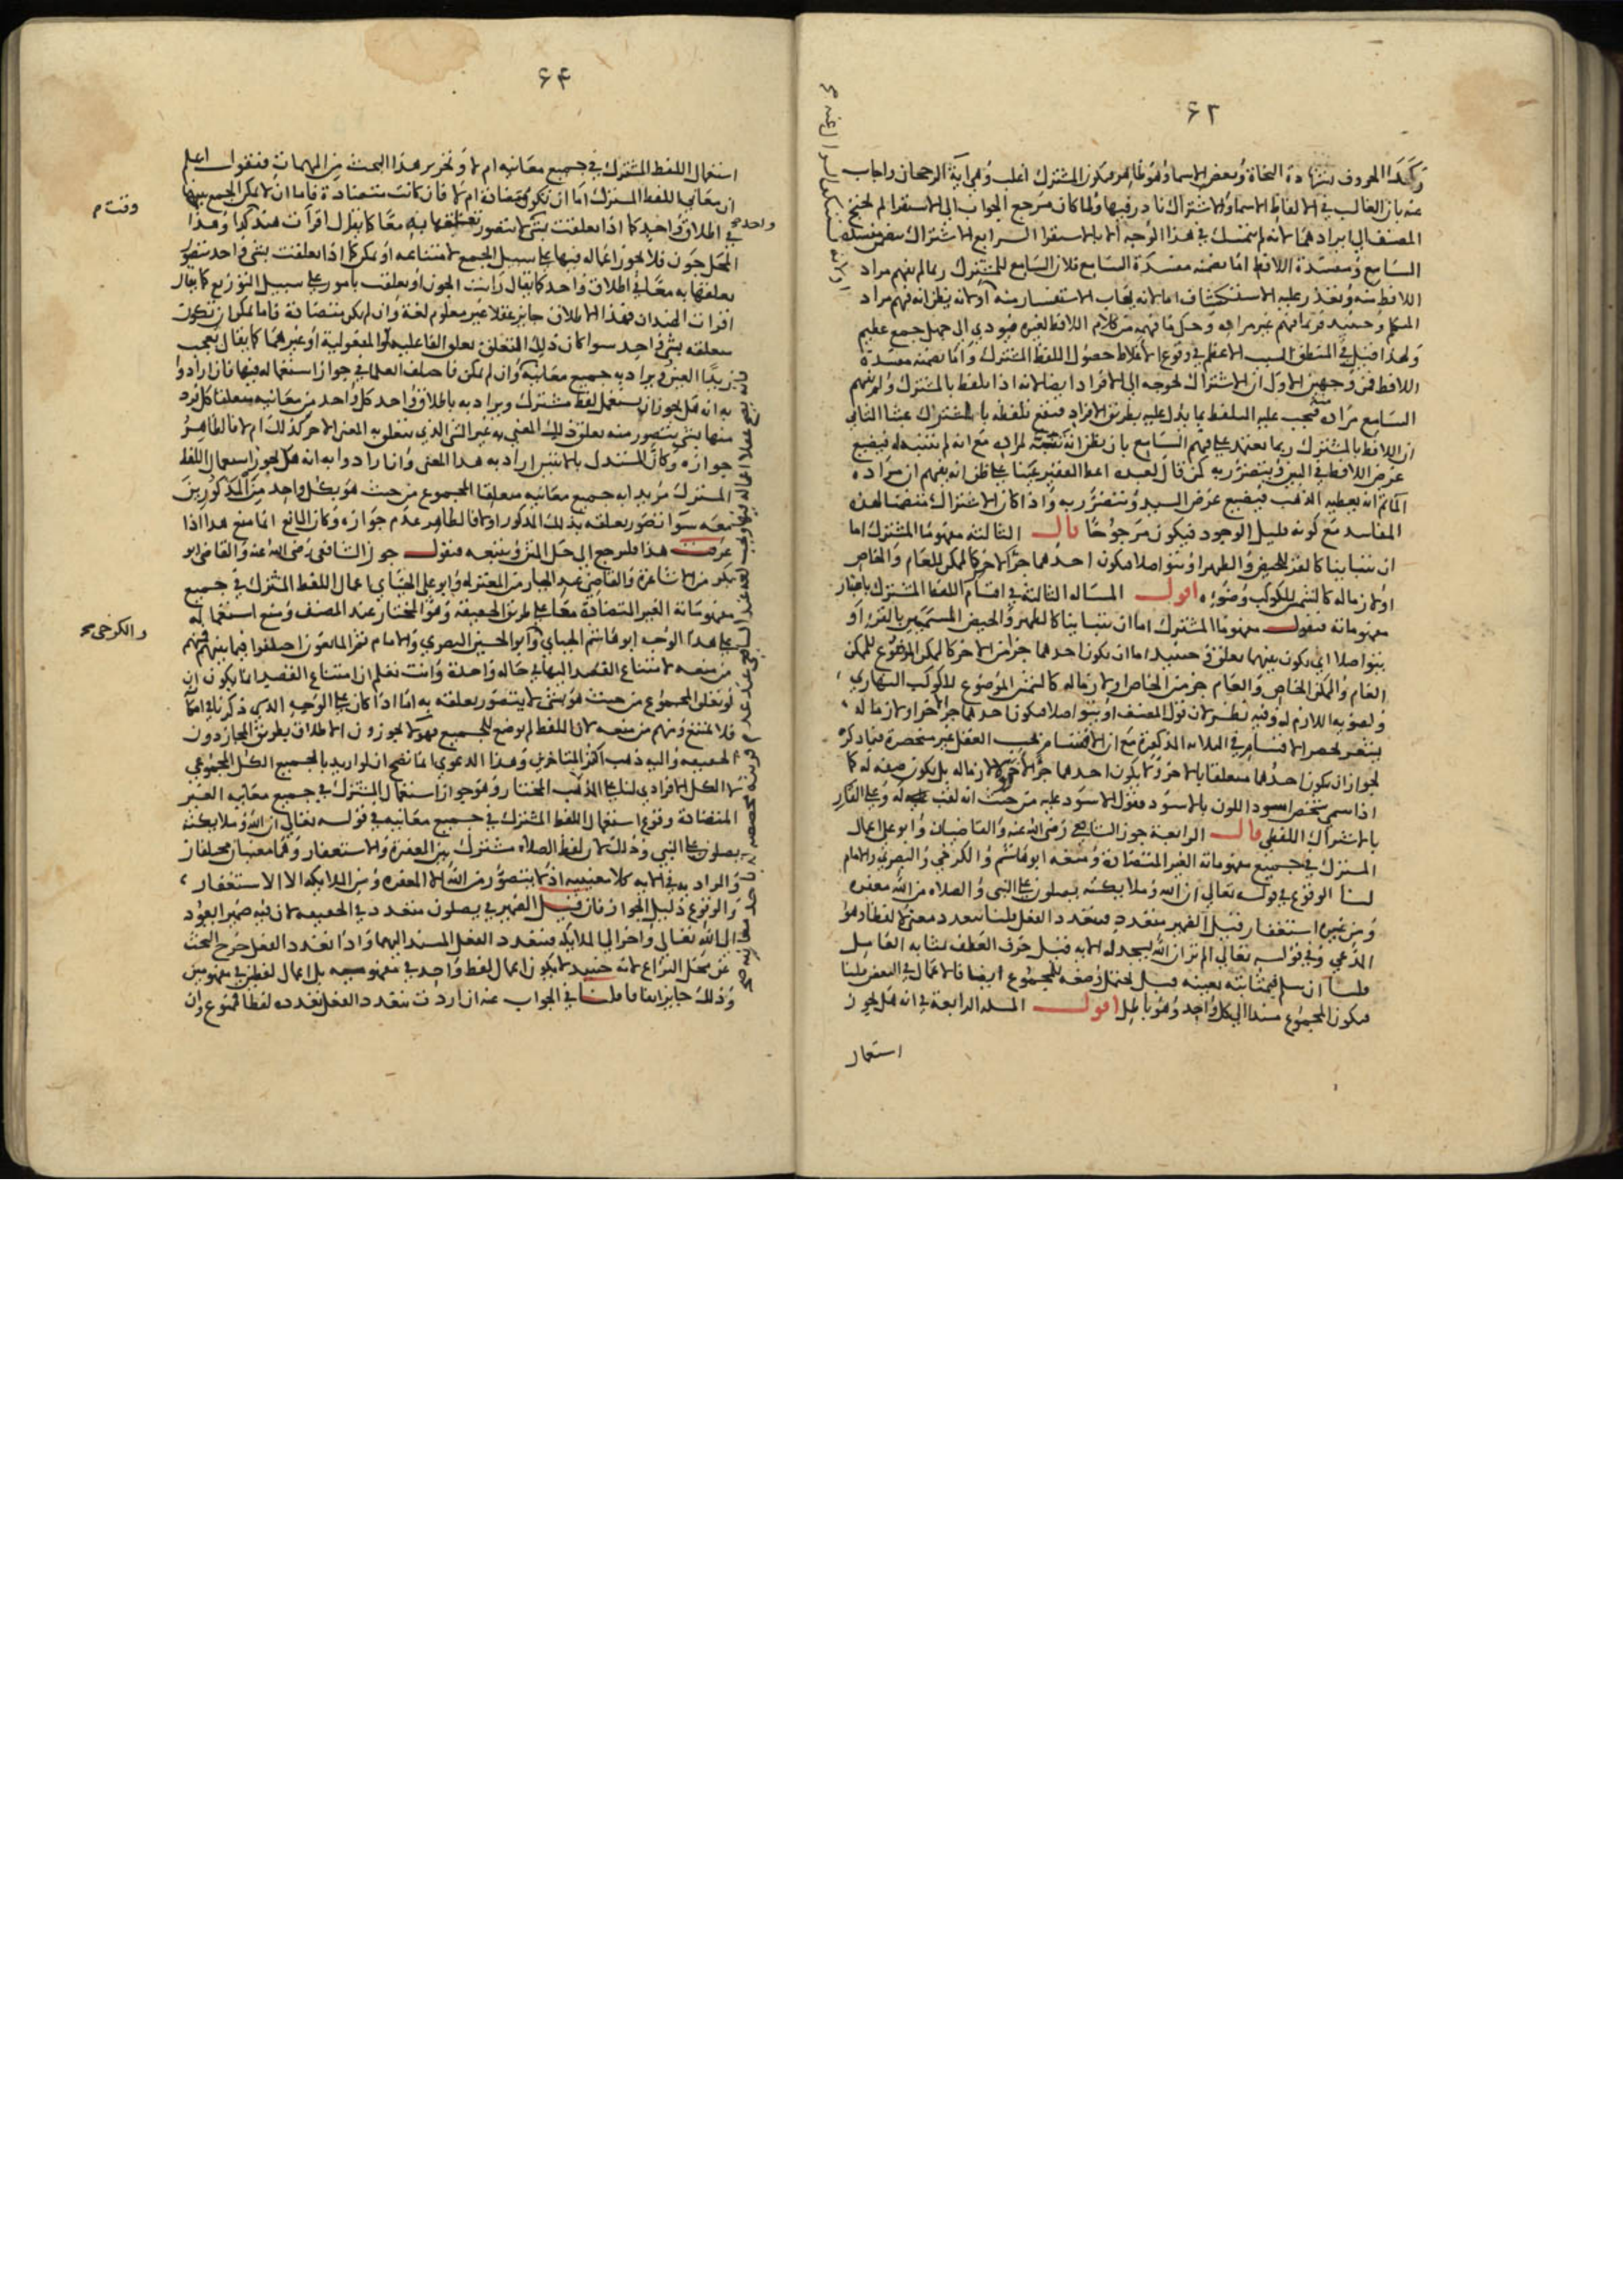 ۶۲
وكذا الحروف بشهادة النحاة وبعض الاسما وهو ظاهر فيكون المشترك اغلب وهي اية الرجحان واجاب
عنه بان الغالب في الالفاظ الاسما والاشتراك نادر فيها ولما كان مرجع الجواب الى الاستقرا لم يحتج
المصنف الى ايرادهما لانه لم يتمسك في هذا الوجه الا بالاستقرا الرابع الاشتراك يتضمن مفسدة
السامع ومفسدة اللافظ اما تضمنه مفسدة السامع فلان السامع للمشترك ربما لم يفهم مراد
اللافظ منه وتعذر عليه الاستكشاف اما لانه يهاب الاستفسار منه او لانه يظن انه فهم مراد
المتكلم وحينئذ فربما فهم غير مراده وحكى ما فهمه من كلام اللافظ لغيره فيودي الى جهل جمع عظيم
ولهذا قيل في المنطق السبب الاعظم في وقوع الاغلاط حصول اللفظ المشترك واما تضمنه مفسدة
اللافظ فمن وجهين الاول ان الاشتراك يحوجه الى الافراد ايضا لانه اذا تلفظ بالمشترك ولم يفهم
السامع مراده منه فيجب عليه التلفظ بما يدل عليه بطريق الافراد فيقع تلفظه بالمشترك عبثا الثاني
ان اللافظ بالمشترك ربما يعتمد على فهم السامع بان يظن انه لمراده مع انه لم يتنبه له فيضيع
غرض اللافظ في البين ويتضرر به كمن قال لعبده اعط الفقير عينا على ظن انه يفهم ان مراده
الماثم انه يعطيه الذهب فيضيع غرض السيد ويتضرر به واذا كان الاشتراك متضمنا لهذه
المفاسد مع كونه قليل الوجود فيكون مرجوحا قال الثالثة مفهوما المشترك اما
ان يتباينا كالقرء للحيض والطهر او يتواصلا فيكون احدهما جزا لاخر كالممكن للعام والخاص
او لازما له كالشمس للكوكب وضوئه اقول المسالة الثالثة في اقسام اللفظ المشترك باعتبار
مفهوماته فنقول مفهوما المشترك اما ان يتباينا كالطهر والحيض المسميين بالقرء او
يتواصلا اي يكون بينهما تعلق وحينئذ اما ان يكون احدهما جزا من الاخر كالممكن الموضوع للممكن
العام والممكن الخاص والعام جز من الخاص او لازما له كالشمس الموضوع للكوكب النهاري
ولضوئه اللازم له وفيه نظر لان قول المصنف او يتواصلا فيكون احدهما جز الاخر او لازما له
يشعر بحصر الاقسام في الثلاثة المذكورة مع ان الاقسام بحسب العقل غير منحصرة فيما ذكره
لجواز ان يكون احدهما متعلقا بالاخر ولا يكون احدهما جزا لاخر ولا لازما له بل يكون صفة له كما
اذا سمي شخص اسود اللون بالاسود فقول الاسود عليه من حيث انه لقب له وعلى القار
بالاشتراك اللفظي قال الرابعة جوز الشافعي رضي الله عنه والقاضيان وابو علي اعمال
المشترك في جميع مفهوماته الغير المتضادة ومنعه ابو هاشم والكرخي والبصري والامام
لنا الوقوع في قوله تعالى ان الله وملائكته يصلون على النبي والصلاه من الله مغفره
ومن غيره استغفار قيل الضمير متعدد فيتعدد الفعل قلنا يتعدد معنى لا لفظا وهو
المدعي وفي قوله تعالى الم تر ان الله يسجد له الايه قيل حرف العطف بمثابه العامل
قلنا ان سلم فبمثابته بعينه قيل يحتمل وضعه للمجموع ايضا فالاعمال في البعض قلنا
فيكون المجموع مسندا الى كل واحد وهو باطل اقول المسالة الرابعة في انه هل يجوز
استعمال
۶۴
استعمال اللفظ المشترك في جميع معانيه ام لا وتحرير هذا البحث من المهمات فنقول اعلم
ان معاني اللفظ المشترك اما ان تكون متضادة ام لا فان كانت متضادة فاما ان لا يمكن الجمع بينها
في اطلاق واحد كما اذا تعلقت بشي لا يتصور تعلقها به معا كما يقال اقرات هند كذا وهذا
المحل جون فلا يجوز اعماله فيها على سبيل الجمع لامتناعه او يمكن كما اذا تعلقت بشي واحد يتصور
تعلقها به معا في اطلاق واحد كما يقال رايت الجون او تعلقت بامور على سبيل التوزيع كما يقال
اقرات الهندان فهذا الاطلاق جايز عقلا غير معلوم لغة وان لم يكن متضادة فاما يمكن ان تكون
متعلقه بشي واحد سوا كان ذلك التعلق تعلق الفاعلية او المفعولية او غيرهما كما يقال يعجب
زيدا العين ويراد به جميع معانيه وان لم يمكن فاختلف العلما في جواز استعماله فيها فان ارادوا
به انه هل يجوز ان يستعمل لفظ مشترك ويراد به باطلاق واحد كل واحد من معانيه متعلقا كل فرد
منها بشي يتصور منه تعلق ذلك المعني به غير الشي الذي يتعلق به المعنى الاخر كذلك ام لا فالظاهر
جوازه وكان المستدل بالايتين اراد به هذا المعنى وان ارادوا به انه هل يجوز استعمال اللفظ
المشترك مريدا به جميع معانيه متعلقا المجموع من حيث هو بكل واحد من المذكورين
سوا تصور تعلقه بذلك المذكور او لا فالظاهر عدم جوازه وكان المانع انما منع هذا اذا
عرفت هذا فلنرجع الى حل المتن ونتبعه فنقول جوز الشافعي رضي الله عنه والقاضي ابو
بكر من الاشاعرة والقاضي عبد الجبار من المعتزله وابو علي الجبائي اعمال اللفظ المشترك في جميع
مفهوماته الغير المتضادة معا على طريق الحقيقه وهو المختار عند المصنف ومنع استعماله
على هذا الوجه ابو هاشم الجبائي وابو الحسين البصري والامام ثم المانعون اختلفوا فيما بينهم فمنهم
من منعه لامتناع القصد اليها في حاله واحدة وانت تعلم ان امتناع القصد انما يكون ان
لو تعلق المجموع من حيث هو بشي لا يتصور تعلقه به اما اذا كان على الوجه الذي ذكرناه
فلا يمتنع ومنهم من منعه لان اللفظ لم يوضع للجميع فهولا يجوزون الاطلاق بطريق المجاز دون
الحقيقه واليه ذهب اكثر المتاخرين وهذا الدعوي انما تصح ان لو اريد بالجميع الكل المجموعي
لا الكل الافرادي لنا على المذهب المختار وهو جواز استعمال المشترك في جميع معانيه الغير
المتضادة وقوع استعمال اللفظ المشترك في جميع معانيه في قوله تعالى ان الله وملائكته
يصلون على النبي وذلك لان لفظ الصلاه مشترك بين المغفرة والاستغفار وهما معنيان مختلفان
والمراد به في الايه كلا معنييه اذ لا يتصور من الله الا المغفره ومن الملائكه الا الاستغفار
والوقوع دليل الجواز فان قيل الضمير في يصلون متعدد في الحقيقه لان فيه ضمير ايعود
الى الله تعالى واخر الى الملائكه فيتعدد الفعل المسند اليهما واذا تعدد الفعل خرج البحث
عن محل النزاع لانه حينئذ لا يكون اعمال لفظ واحد في مفهوميه بل اعمال لفظين في مفهومين
وذلك جايز اتفاقا قلنا في الجواب عنه ان اردت بتعدد الفعل تعدده لفظا فممنوع وان
وقت م
واحد صح
والكرخي صح